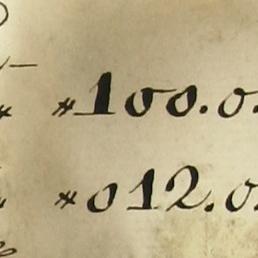 〃100.0.
〃012.0.